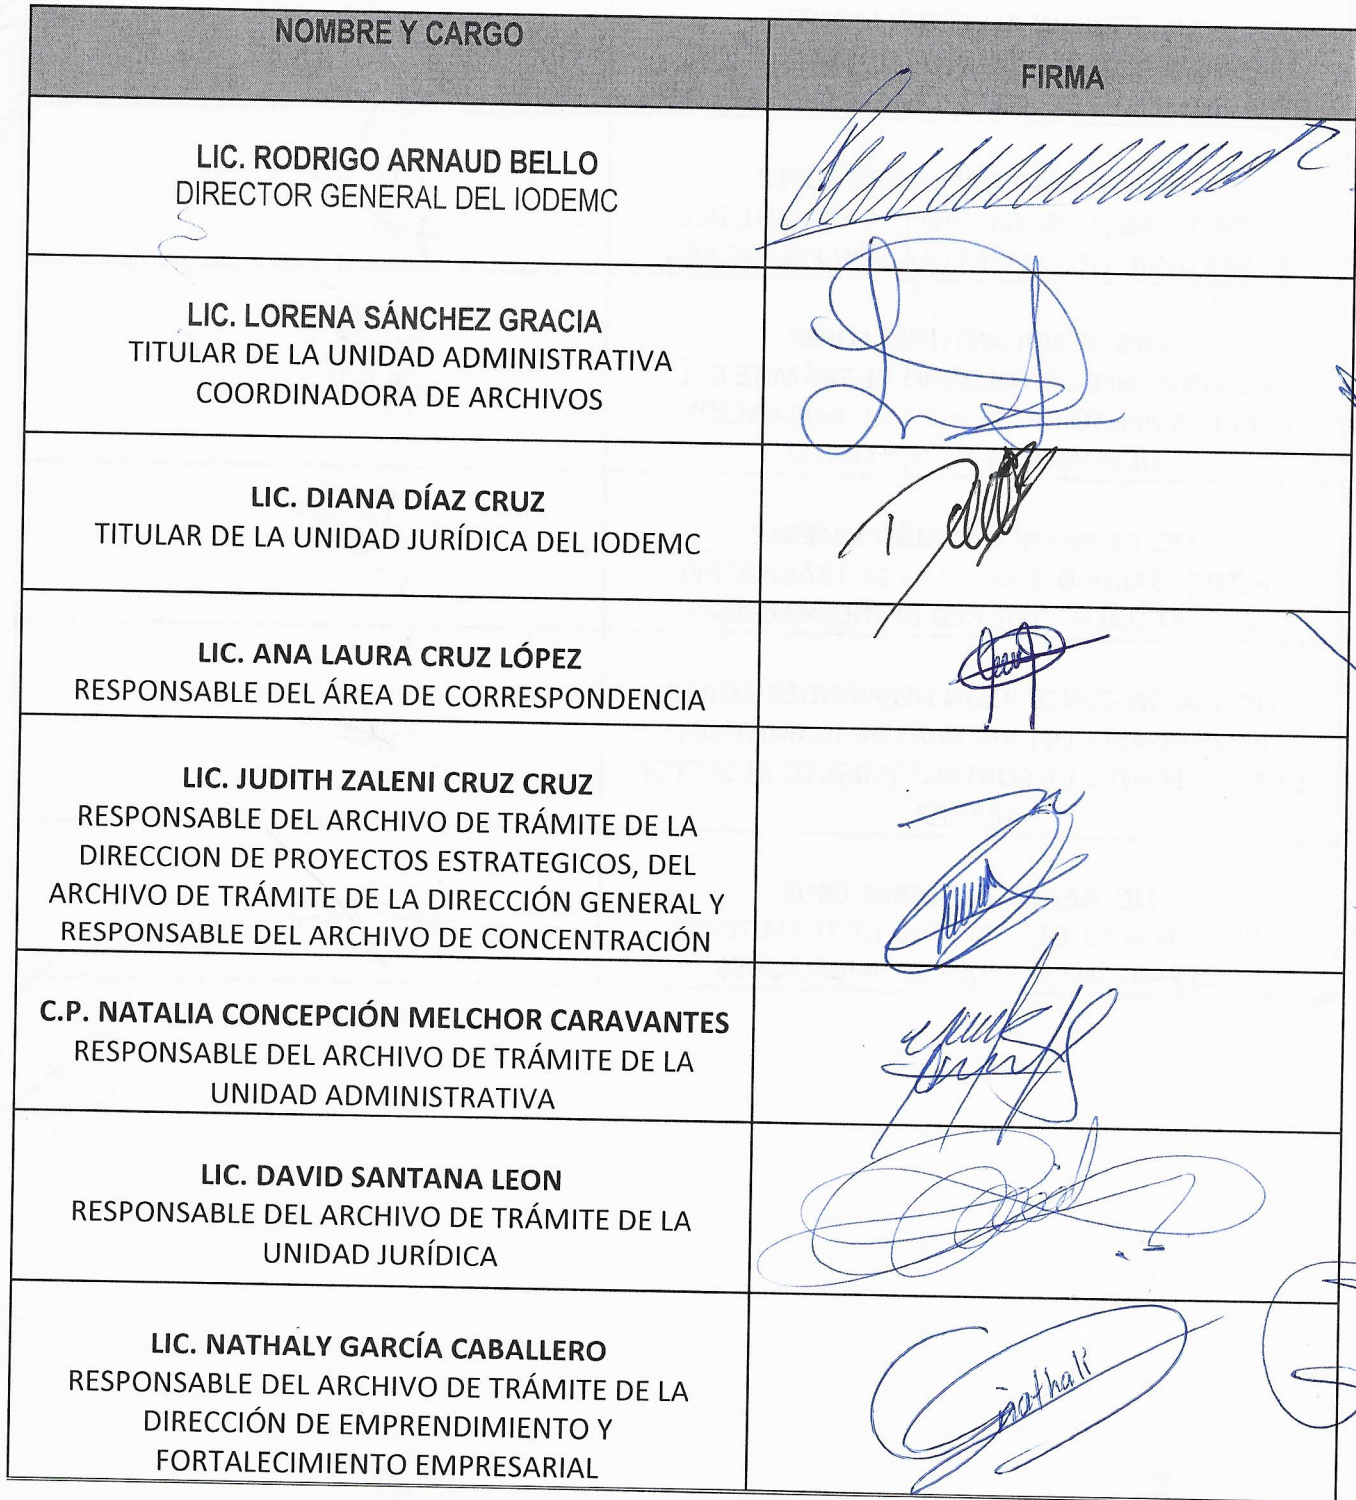 NOMBRE Y CARGO
FIRMA
LIC. RODRIGO ARNAUD BELLO
DIRECTOR GENERAL DEL IODEMC
LIC. LORENA SÁNCHEZ GRACIA
TITULAR DE LA UNIDAD ADMINISTRATIVA
COORDINADORA DE ARCHIVOS
LIC. DIANA DÍAZ CRUZ
TITULAR DE LA UNIDAD JURÍDICA DEL IODEMC
LIC. ANA LAURA CRUZ LÓPEZ
RESPONSABLE DEL ÁREA DE CORRESPONDENCIA
LIC. JUDITH ZALENI CRUZ CRUZ
RESPONSABLE DEL ARCHIVO DE TRÁMITE DE LA
DIRECCION DE PROYECTOS ESTRATEGICOS, DEL
ARCHIVO DE TRÁMITE DE LA DIRECCIÓN GENERAL Y
RESPONSABLE DEL ARCHIVO DE CONCENTRACIÓN
C.P. NATALIA CONCEPCIÓN MELCHOR CARAVANTES
RESPONSABLE DEL ARCHIVO DE TRÁMITE DE LA
UNIDAD ADMINISTRATIVA
LIC. DAVID SANTANA LEON
RESPONSABLE DEL ARCHIVO DE TRÁMITE DE LA
UNIDAD JURÍDICA
LIC. NATHALY GARCÍA CABALLERO
RESPONSABLE DEL ARCHIVO DE TRÁMITE DE LA
DIRECCIÓN DE EMPRENDIMIENTO Y
FORTALECIMIENTO EMPRESARIAL
nathali